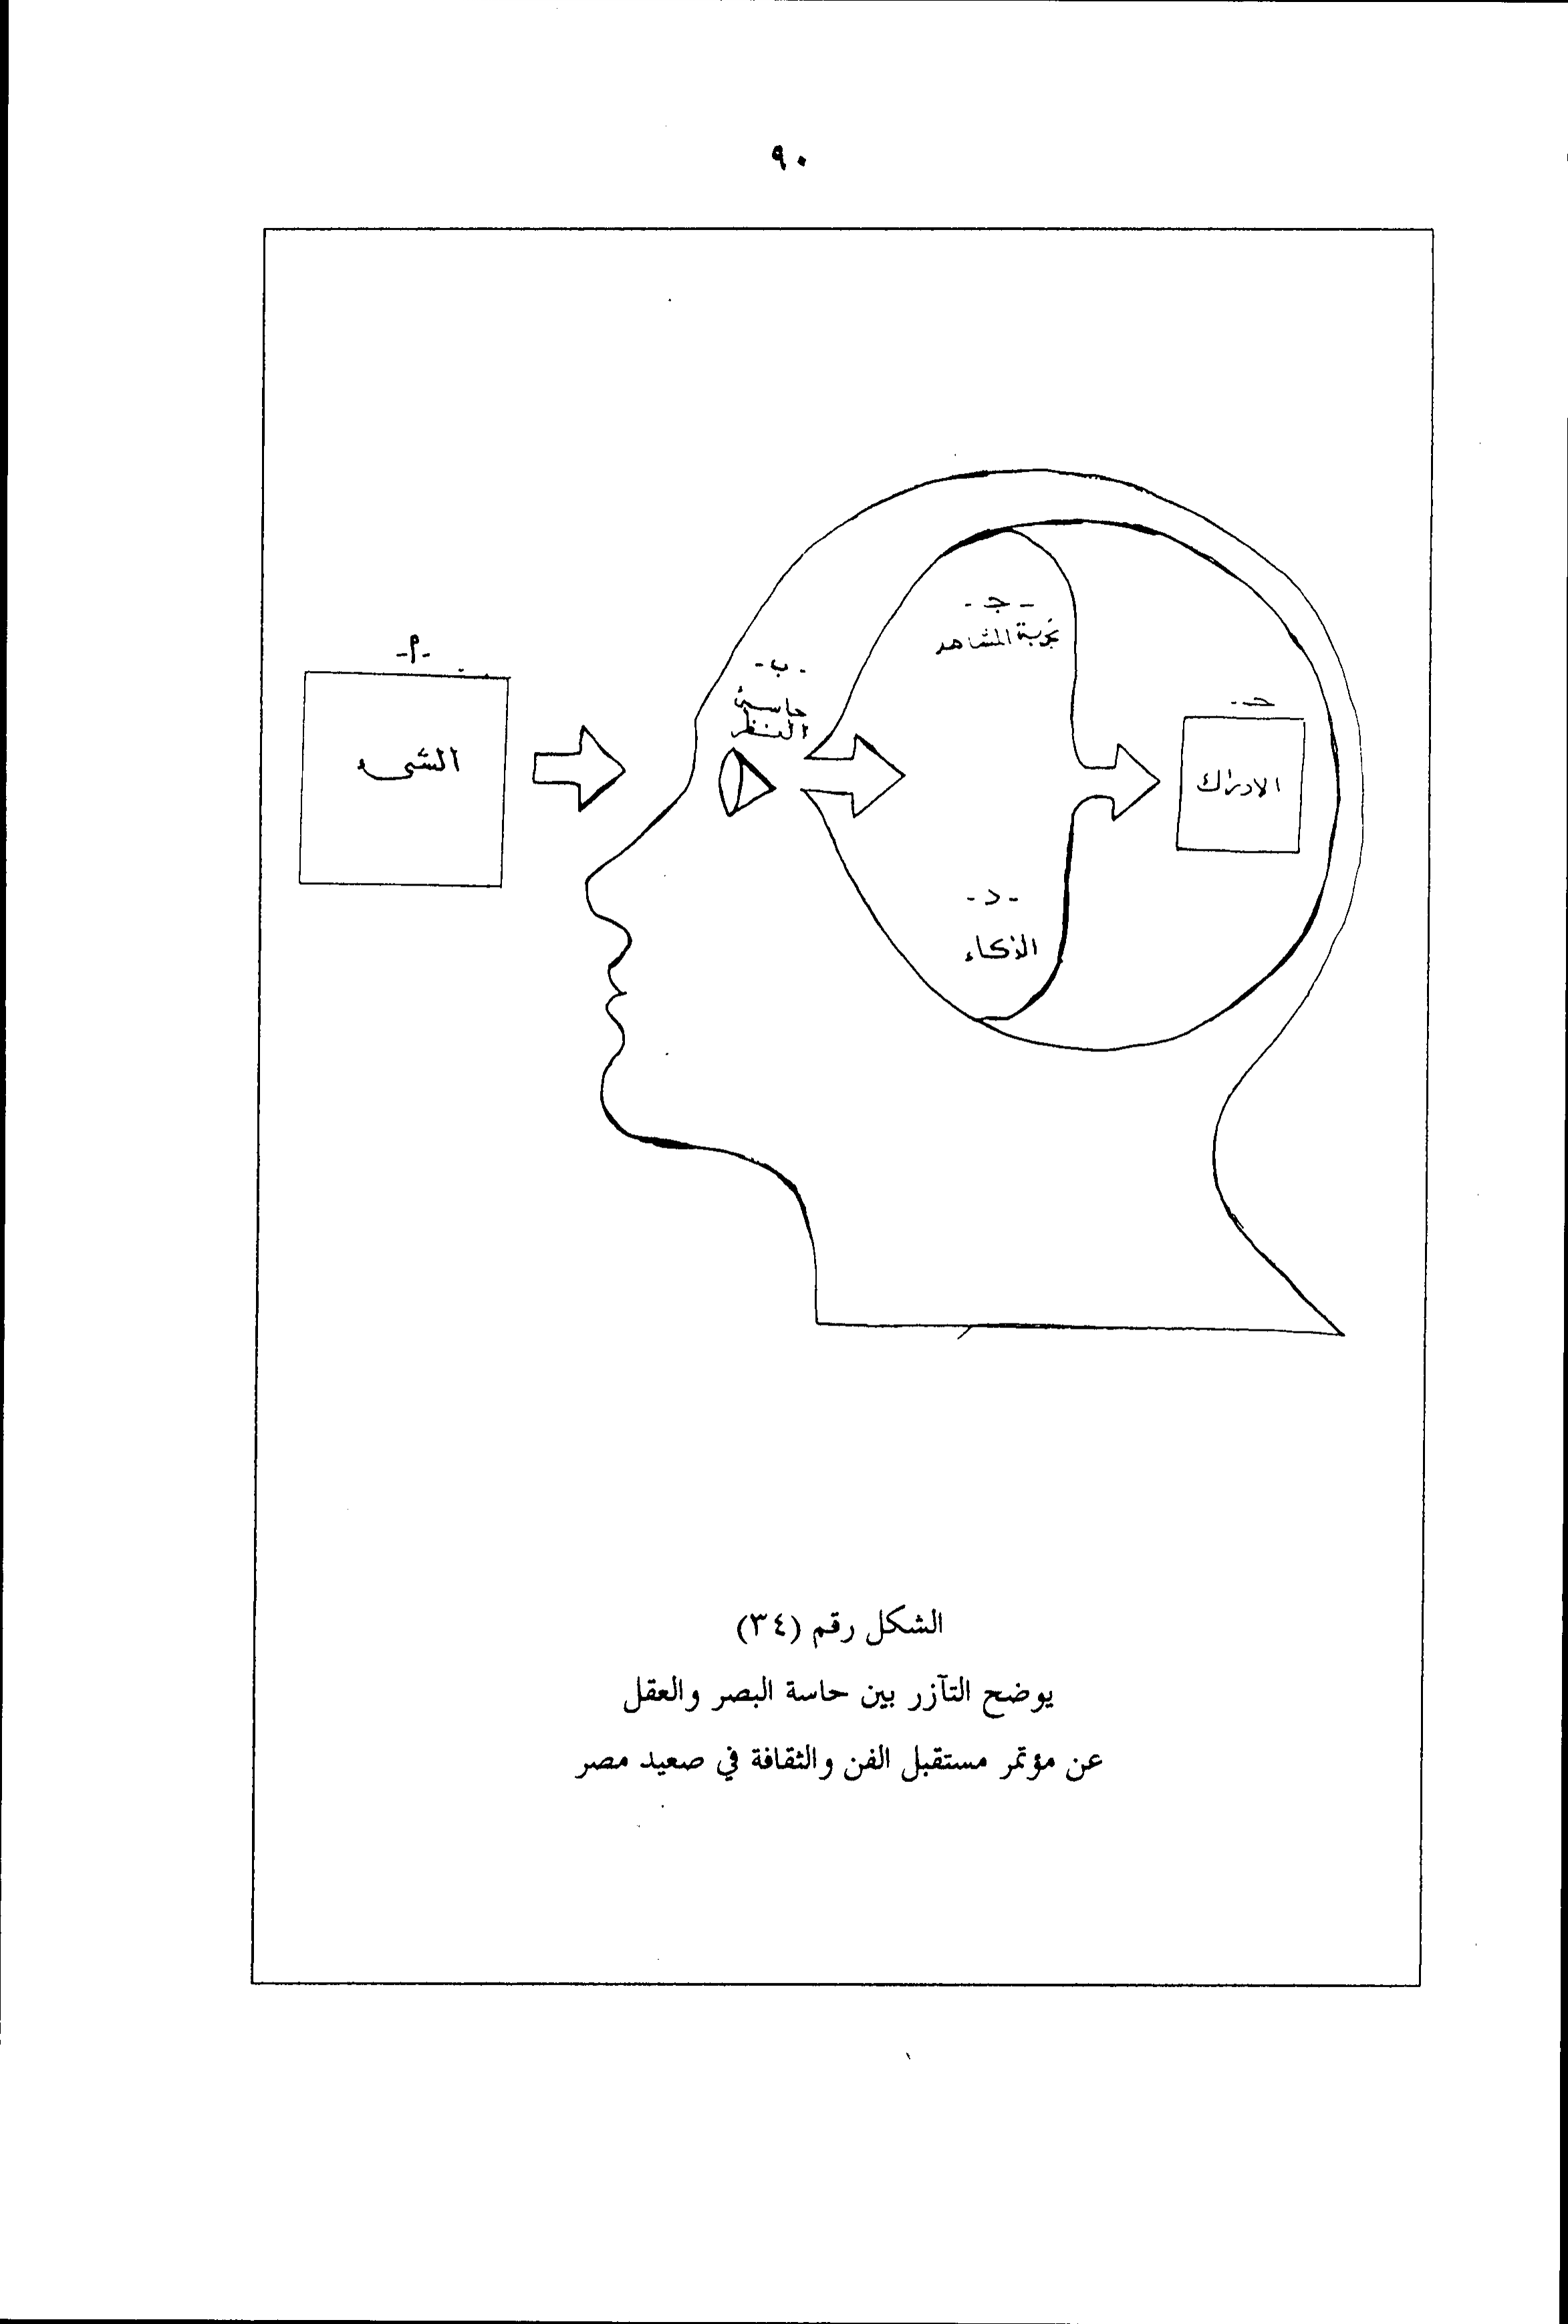 ٩٠
-أ-
الشىء
-ب-
حاسة
النظر
-جـ-
تجربة المشاهد
-د-
الذكاء
الادراك
الشكل رقم (٣٤)
يوضح التآزر بين حاسة البصر والعقل
عن مؤتمر مستقبل الفن والثقافة في صعيد مصر